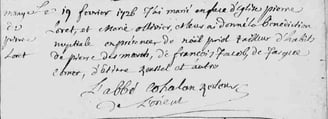 mariage
de
pierre
Loret
Le 19 février 1726 J'ai marié en face d'Eglise pierre
Loret, et Marie ollivier, et leur ai donné la Bénédiction
nuptiale en présence de noël priol tailleur d'habits
de pierre des marais, de francois Jacob, de Jacque
d'Etiene Roussel et autres
L'abbé Cohalan recteur
de